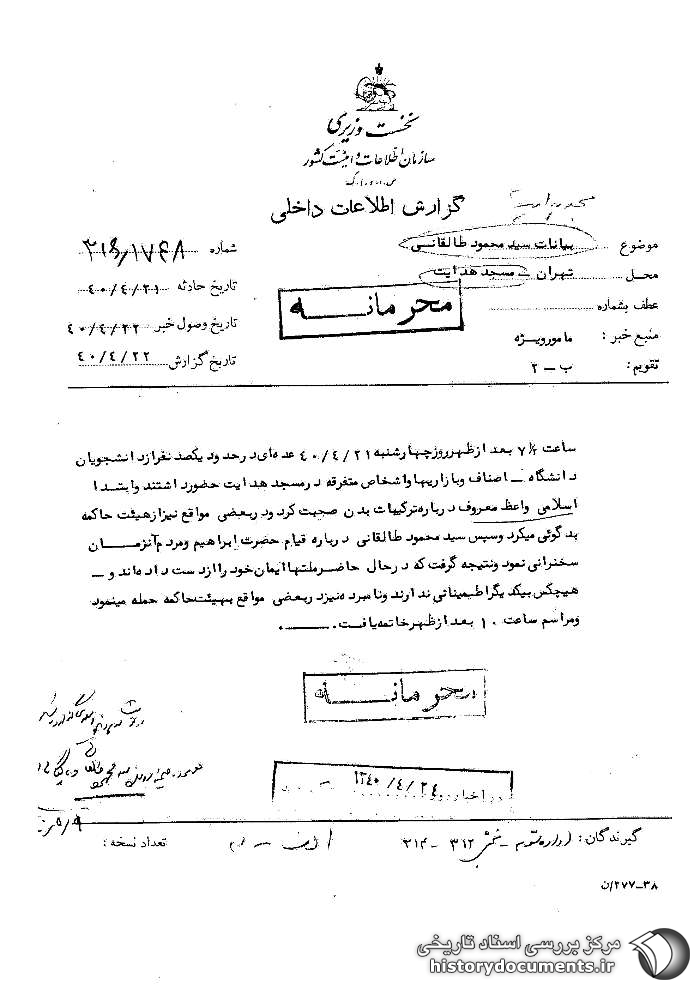 نخست وزیری
سازمان اطلاعات و امنیت کشور
س.ا.و.ا.ک
گزارش اطلاعات داخلی
مسجد هدایت
موضوع بیانات سید محمود طالقانی
شماره ۳۱۶/۱۷۴۸
محل تهران ـ مسجد هدایت
تاریخ حادثه ۴۰/۴/۲۱
عطف بشماره
محرمانه
تاریخ وصول خبر ۴۰/۴/۲۲
منبع خبر : مامورویژه
تاریخ گزارش ۴۰/۴/۲۲
تقویم : ب ـ ۲
ساعت ۷½ بعد ازظهرروزچهارشنبه ۴۰/۴/۲۱ عده‌ای در حدود یکصد نفرازدانشجویان
دانشگاه ـ اصناف وبازاریهاواشخاص متفرقه درمسجد هدایت حضورداشتند وابتدا
اسلامی واعظ معروف درباره‌ترکیبات بدن صحبت کرد ودربعضی مواقع نیزازهیئت حاکمه
بدگوئی میکرد وسپس سید محمود طالقانی درباره قیام حضرت ابراهیم ومردم آنزمان
سخنرانی نمود ونتیجه گرفت که درحال حاضرملتهاایمان خود راازدست داده‌اند و ـ
هیچکس بیکدیگراطمینانی ندارند ونامبرده‌نیزدربعضی مواقع بهیئت‌حاکمه حمله مینمود
ومراسم ساعت ۱۰ بعد ازظهرخاتمه‌یافت.
محرمانه
در اخبار روز ۱۳۴۰/۴/۲۴
گیرندگان :
۳۱۲ ـ ۲۱۴
تعداد نسخه :
۳۸-۲۷۷/ن
مرکز بررسی اسناد تاریخی
historydocuments.ir